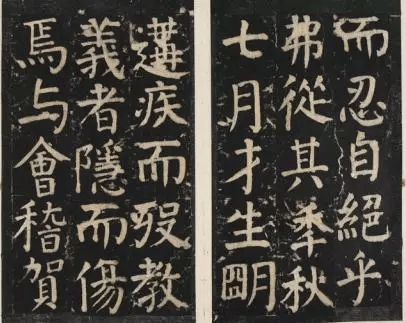 而忍自絕乎
弗從其秊秋
七月才生朙
遘疾而歿教
義者隱而傷
焉与會稽賀